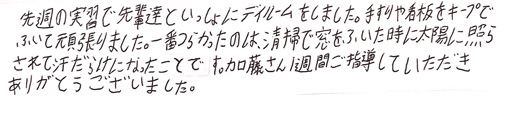 先週の実習で先輩達といっしょにデイルームをしました。手すりや看板をキープで
ふいて頑張りました。一番つらかったのは、清掃で窓をふいた時に太陽に照ら
されて汗だらけになったことです。加藤さん1週間ご指導していただき
ありがとうございました。